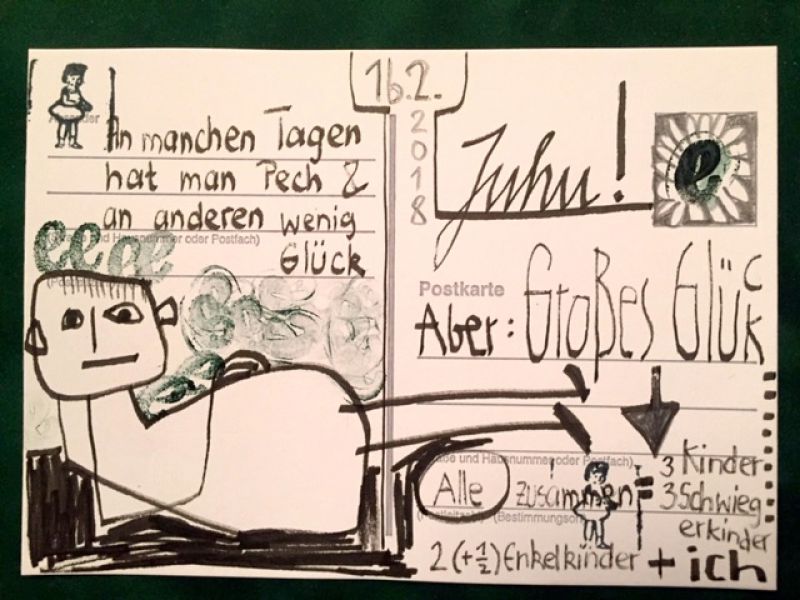 An manchen Tagen
hat man Pech &
an anderen wenig
Glück
16.2.
2018
Juhu!
e
ee
Postkarte
Aber: Großes Glück
Alle zusammen =
3 Kinder
3 Schwieg
erkinder
2 (+½) Enkelkinder + ich
und Hausnummer oder Postfach)
und Hausnummer oder Postfach)
(Bestimmungsort)